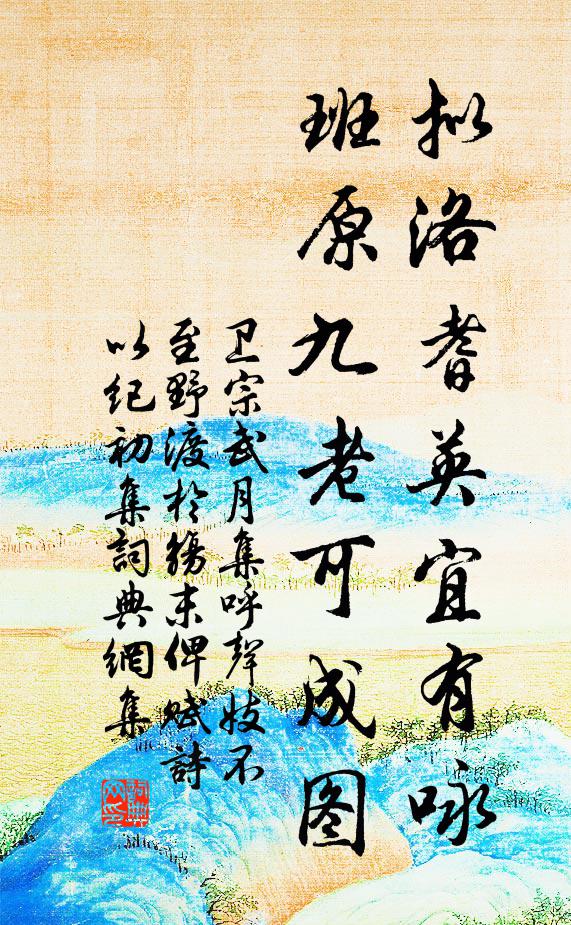 拟洛耆英宜有咏
班原九老可成图
卫宗武月集呼声妓不
至野渡於觞末俾赋诗
以纪初集詞典網集